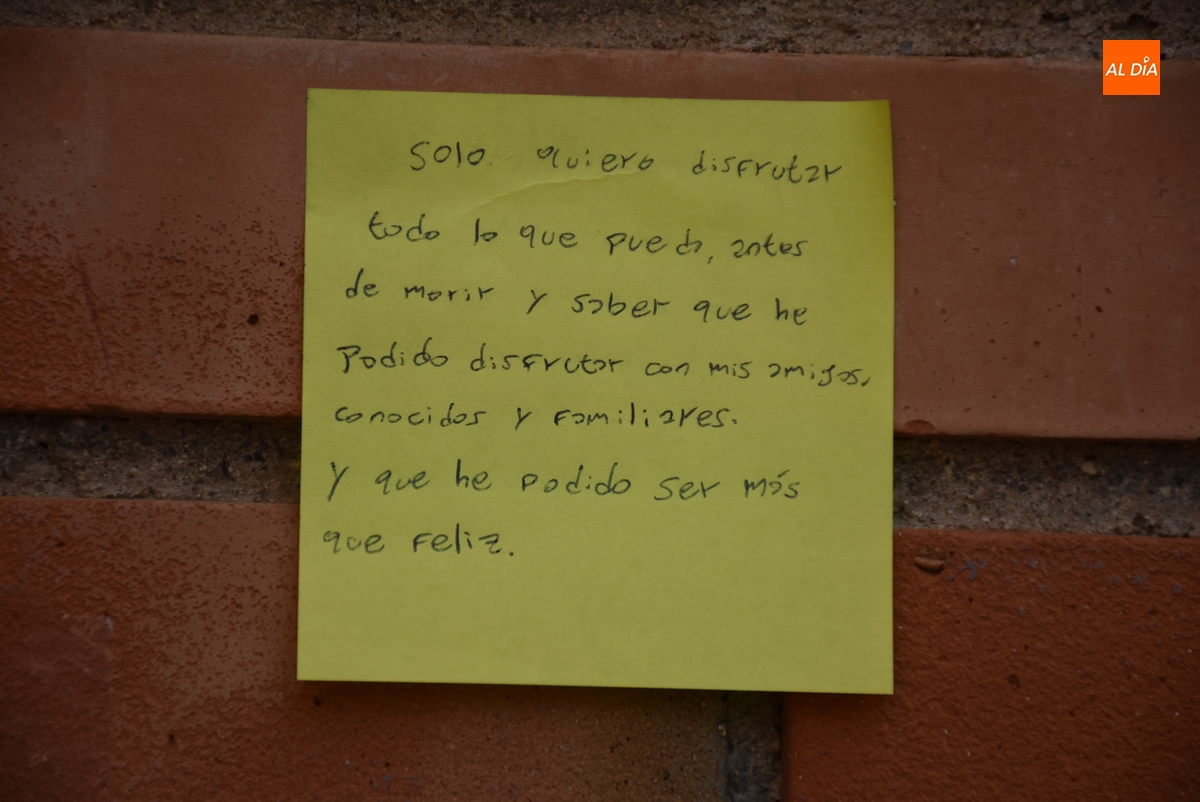 AL DÍA
Solo quiero disfrutar
todo lo que puedo, antes
de morir y saber que he
Podido disfrutar con mis amigos,
conocidos y familiares.
Y que he podido ser más
que feliz.